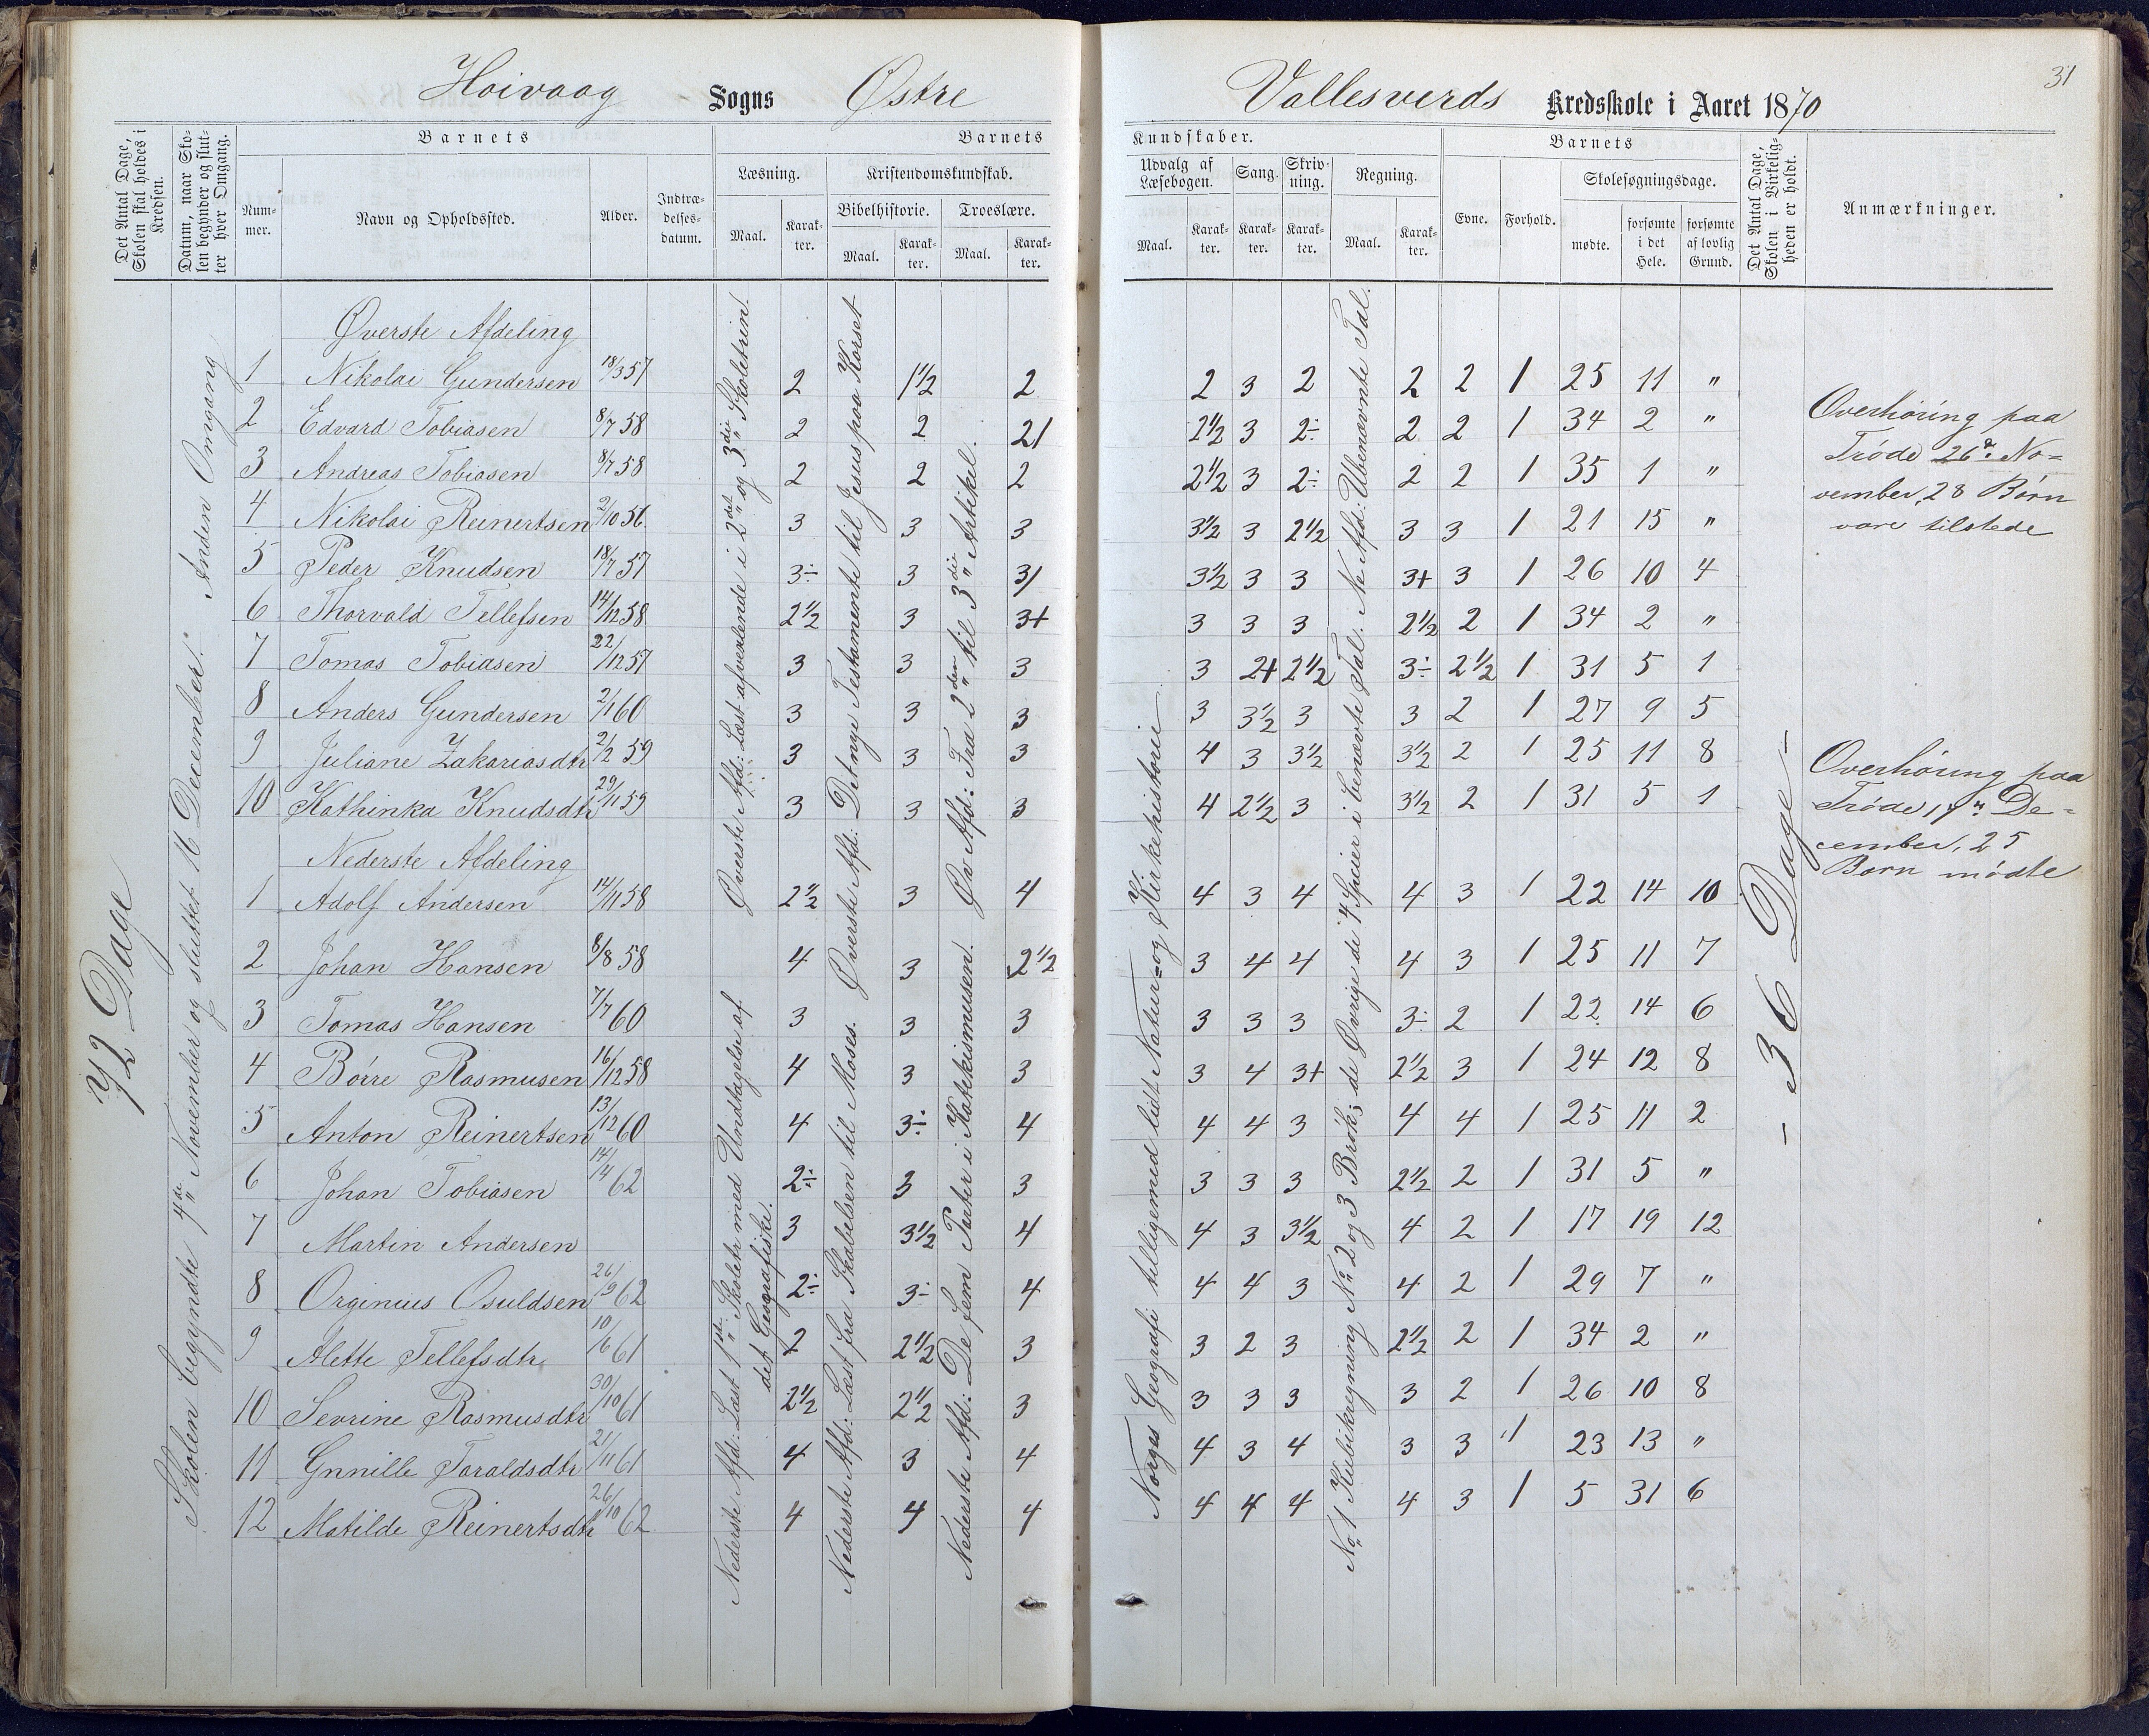 Hoivaag Sogns Østre
Vallesverds Kredsskole i Aaret 1870
31
Det Antal Dage, Skolen skal holdes i Kredsen.
Datum, naar Skolen begynder og slutter hver Omgang.
Barnets
Nummer.
Navn og Opholdssted.
Alder.
Indtrædelsesdatum.
Barnets
Læsning.
Maal.
Karakter.
Kristendomskundskab.
Bibelhistorie.
Maal.
Karakter.
Troeslære.
Maal.
Karakter.
Kundskaber.
Udvalg af Læsebogen.
Maal.
Karakter.
Sang.
Karakter.
Skrivning.
Karakter.
Regning.
Maal.
Karakter.
Barnets
Evne.
Forhold.
Skolesøgningsdage.
mødte.
forsømte i det Hele.
forsømte af lovlig Grund.
Det Antal Dage, Skolen i Virkeligheden er holdt.
Anmærkninger.
72 Dage
Anden Omgang
Skolen begyndte 4de November og sluttet 16 December.
Øverste Afdeling
1 Nikolai Gundersen 18/3 57 2 1½ 2 2 3 2 2 2 1 25 11 "
2 Edvard Tobiasen 8/7 58 2 2 21 2½ 3 2÷ 2 2 1 34 2 "
3 Andreas Tobiasen 8/7 58 2 2 2 2½ 3 2÷ 2 2 1 35 1 "
4 Nikolai Reinertsen 2/10 56 3 3 3 3½ 3 2½ 3 3 1 21 15 "
5 Peder Knudsen 18/7 57 3÷ 3 31 3½ 3 3 3+ 3 1 26 10 4
6 Thorvald Tellefsen 14/12 58 2½ 3 3+ 3 3 3 2½ 2 1 34 2 "
7 Tomas Tobiasen 22/12 57 3 3 3 3 2+ 2½ 3÷ 2½ 1 31 5 1
8 Anders Gundersen 2/1 60 3 3 3 3 3½ 3 3 2 1 27 9 5
9 Juliane Zakariasdtr 2/2 59 3 3 3 4 3 3½ 3½ 2 1 25 11 8
10 Kathinka Knudsdtr 29/11 59 3 3 3 4 2½ 3 3½ 2 1 31 5 1
Nederste Afdeling
1 Adolf Andersen 14/11 58 2½ 3 4 4 3 4 4 3 1 22 14 10
2 Johan Hansen 8/8 58 4 3 2½ 3 4 4 4 3 1 25 11 7
3 Tomas Hansen 7/7 60 3 3 3 3 3 3 3÷ 2 1 22 14 6
4 Börre Rasmusen 16/12 58 4 3 3 3 4 3+ 2½ 3 1 24 12 8
5 Anton Reinertsen 13/12 60 4 3÷ 4 4 4 3 4 4 1 25 11 2
6 Johan Tobiasen 14/14 62 2÷ 3 3 3 3 3 2½ 2 1 31 5 "
7 Martin Andersen 3 3½ 4 4 3 3½ 4 2 1 17 19 12
8 Orginius Osuldsen 26/9 62 2÷ 3÷ 4 4 4 3 4 2 1 29 7 "
9 Alette Tellefsdtr 10/6 61 2 2½ 3 3 2 3 2½ 2 1 34 2 "
10 Sevrine Rasmusdtr 30/10 61 2½ 2½ 3 3 3 3 3 2 1 26 10 8
11 Gnnille Taraldsdtr 21/11 61 4 3 4 4 3 4 3 3 1 23 13 "
12 Matilde Reinertsdtr 26/10 62 4 4 4 4 4 4 4 3 1 5 31 6
Øverste Afd: Læst afvexlende i 2det og 3die Skoletrin.
Nederste Afd: Læst 1ste Skoletr med Undtagelse af
det Geografiske.
Øverste Afd: Det nye Testamente til Jesus paa Korset
Nederste Afd: Læst fra Skabelsen til Moses.
Øv Afd: Fra 2den til 3die Artikel.
Nederste Afd: De fem Parter i Katekismusen.
Norges Geografi tilligemed lidt Natur- og Kirkehistorie
No 1 Kubikregning No 2 og 3 Brøk; de Øvrige de 4 Specier i benævnte Tal. Ne Afd: Ubenævnte Tal.
- 36 Dage -
Overhöring paa
Trøde 26de No=
vember, 28 Børn
vare tilstede
Overhøring paa
Trøde 14" De=
cember, 25
Børn mødte